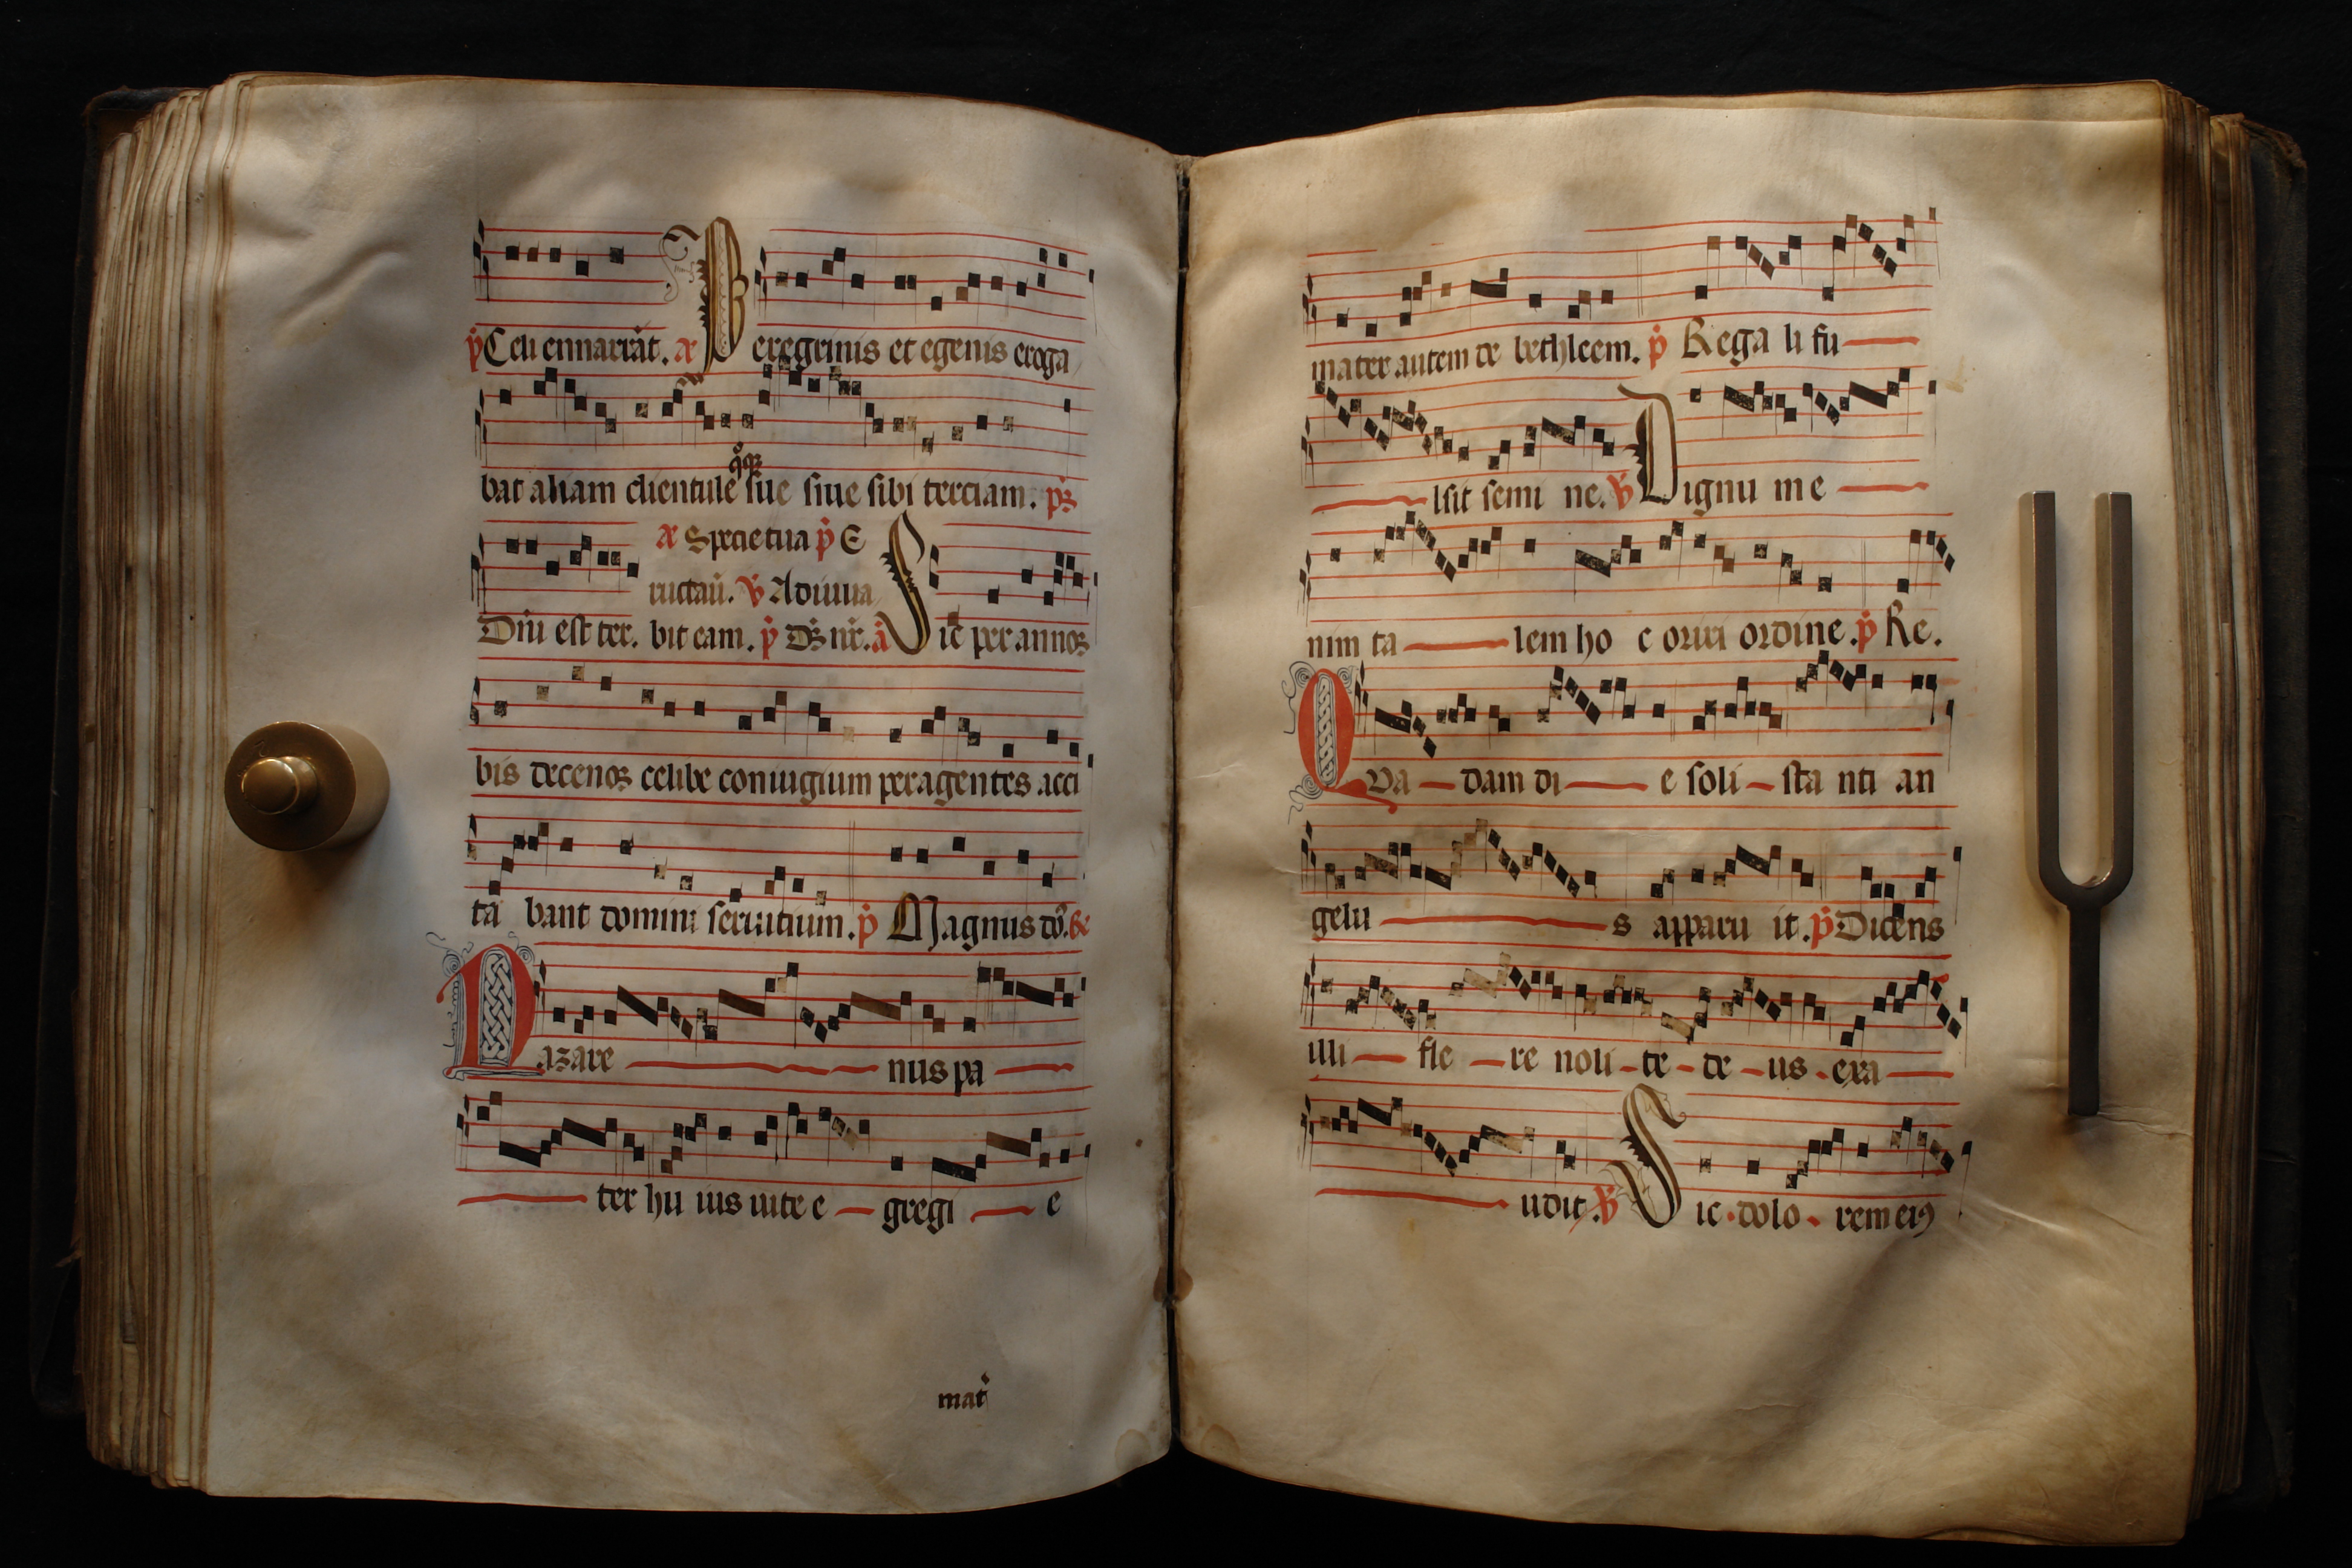 p̄ Celi ennarrāt. a Peregrinis et egenis eroga
bat aliam clientule sue siue sibi terciam. ps
a Specie tua p̄ E
ructaū. v Adiuua
Diū est ter. bit eam. p̄ Ds nr. a Sic per annoꝝ
bis decenoꝝ celibe coniugium peragentes acci
ta bant domini seruitium. p̄ Magnus dō.
Nazare nus pa
ter hu ius uite e gregi e
mat
mater autem de bethleem. p̄ Rega li fu
lsit semi ne. v Dignu m e
nim ta lem ho c oriri ordine. p̄ Re.
Qva dam di e soli sta nti an
gelu s apparu it. p̄ Dicens
illi fle re noli te de us exa
udit. v Sic dolo rem eiꝰ